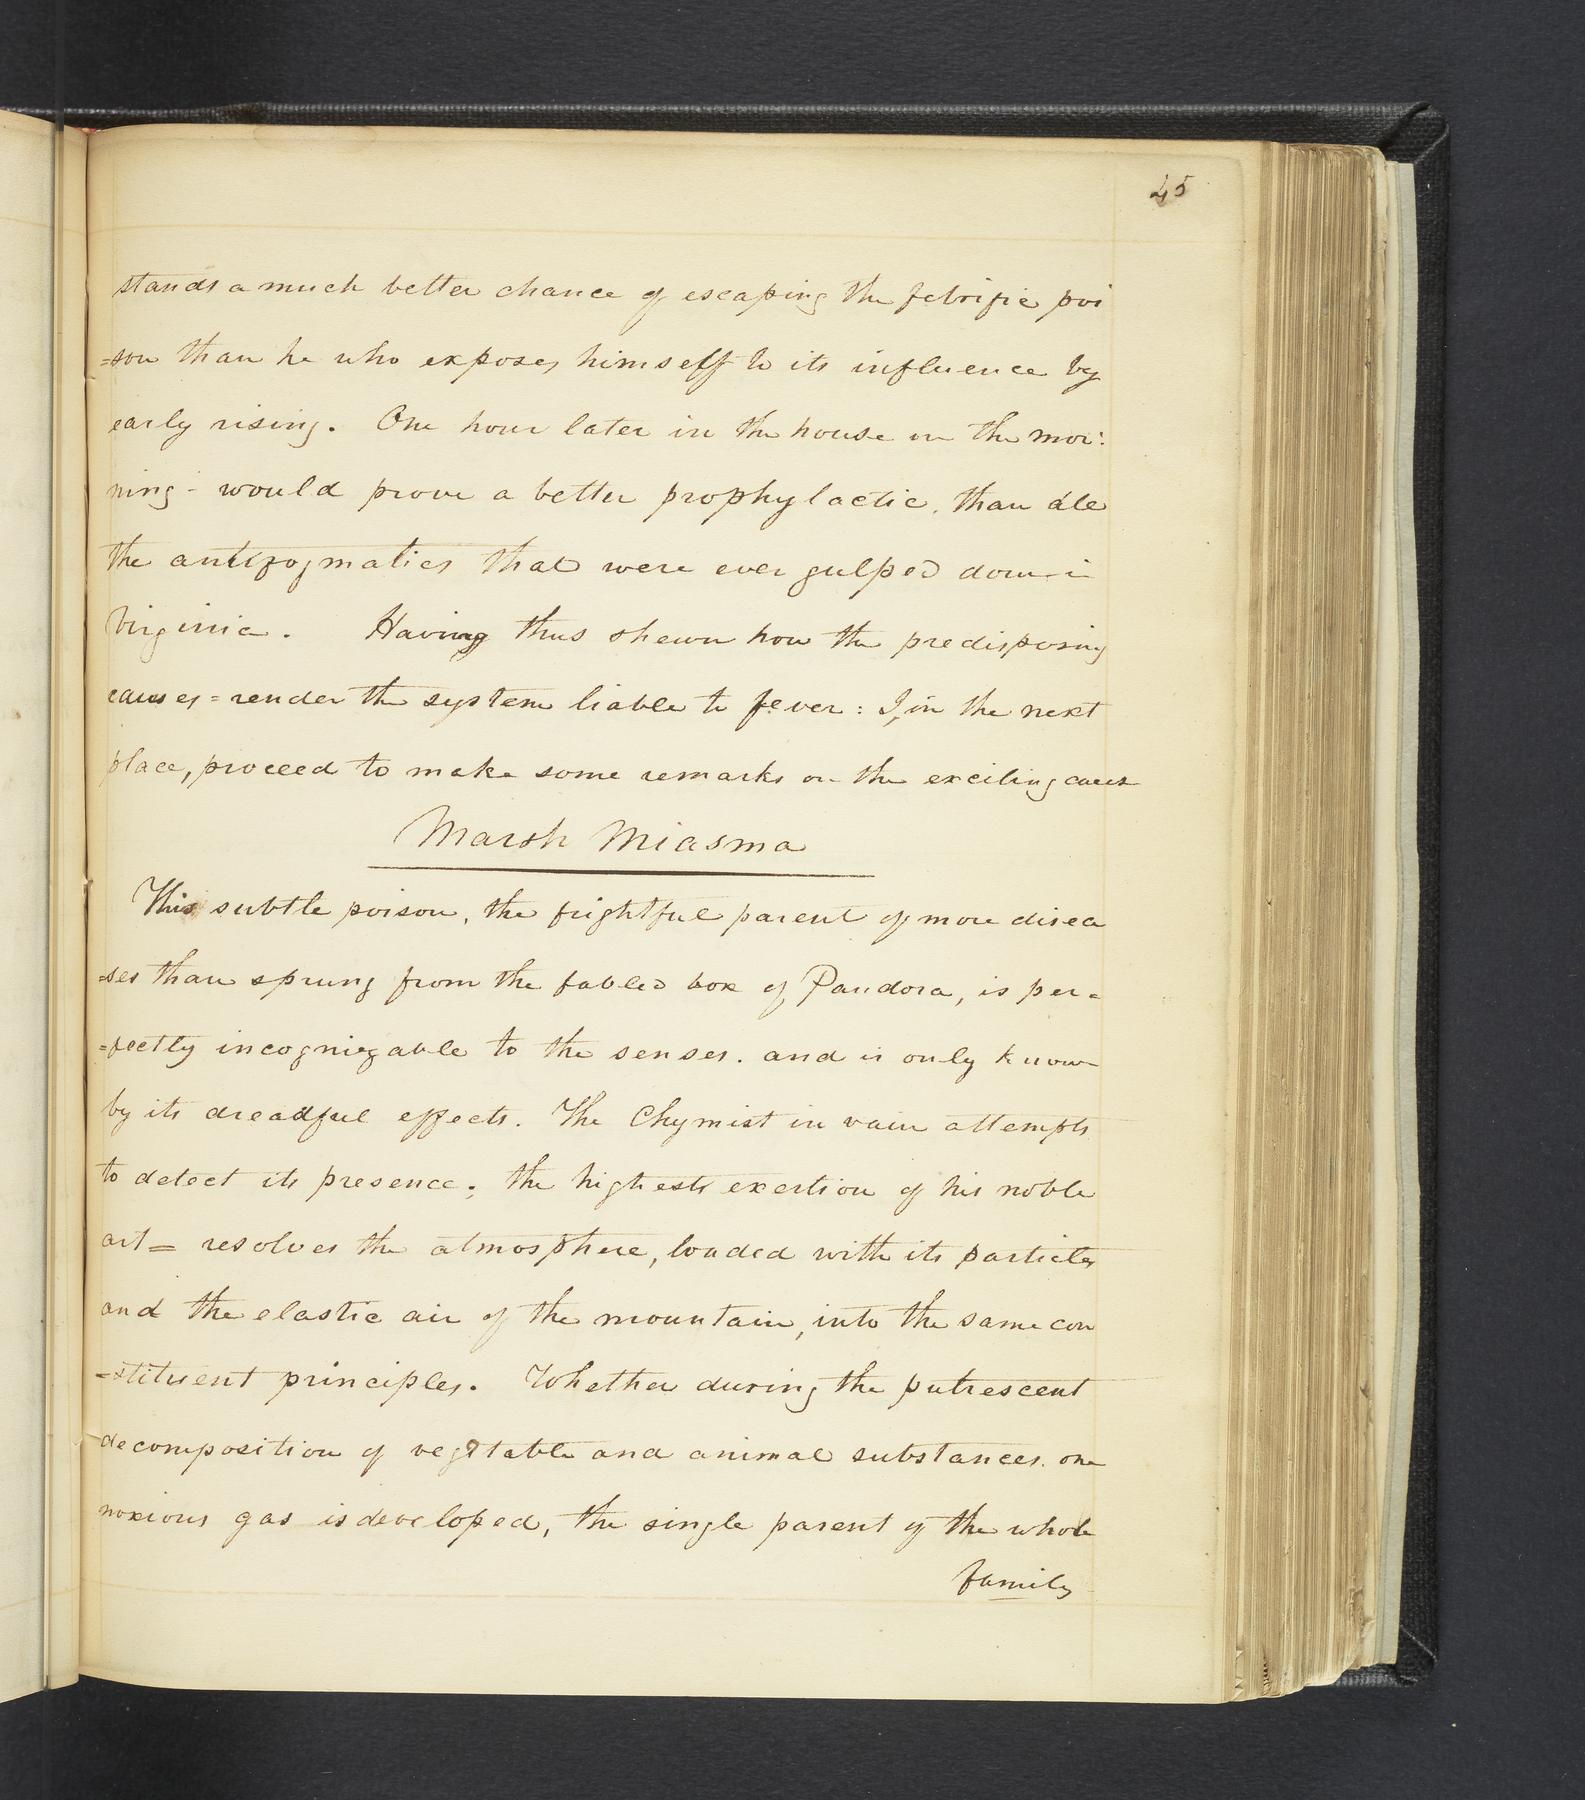 45
stands a much better chance of escaping the febrific poi
=son than he who exposes himself to its influence by
early rising. One hour later in the house in the mor:
ning - would prove a better prophylactic, than all
the antifogmatics that were ever gulped down in
Virginia. Having thus shewn how the predisposing
causes = render the system liable to fever: I, in the next
place, proceed to make some remarks on the exciting cause
Marsh Miasma
This subtle poison, the frightful parent of more disea
=ses than sprung from the fabled box of Pandora, is per=
=fectly incognizable to the senses. and is only known
by its dreadful effects. The Chymist in vain attempts
to detect its presence; the highest exertion of his noble
art = resolves the atmosphere, loaded with its particles
and the elastic air of the mountain, into the same con
=stituent principles. Whether during the putrescent
decomposition of vegetable and animal substances. one
noxious gas is developed, the single parent of the whole
family